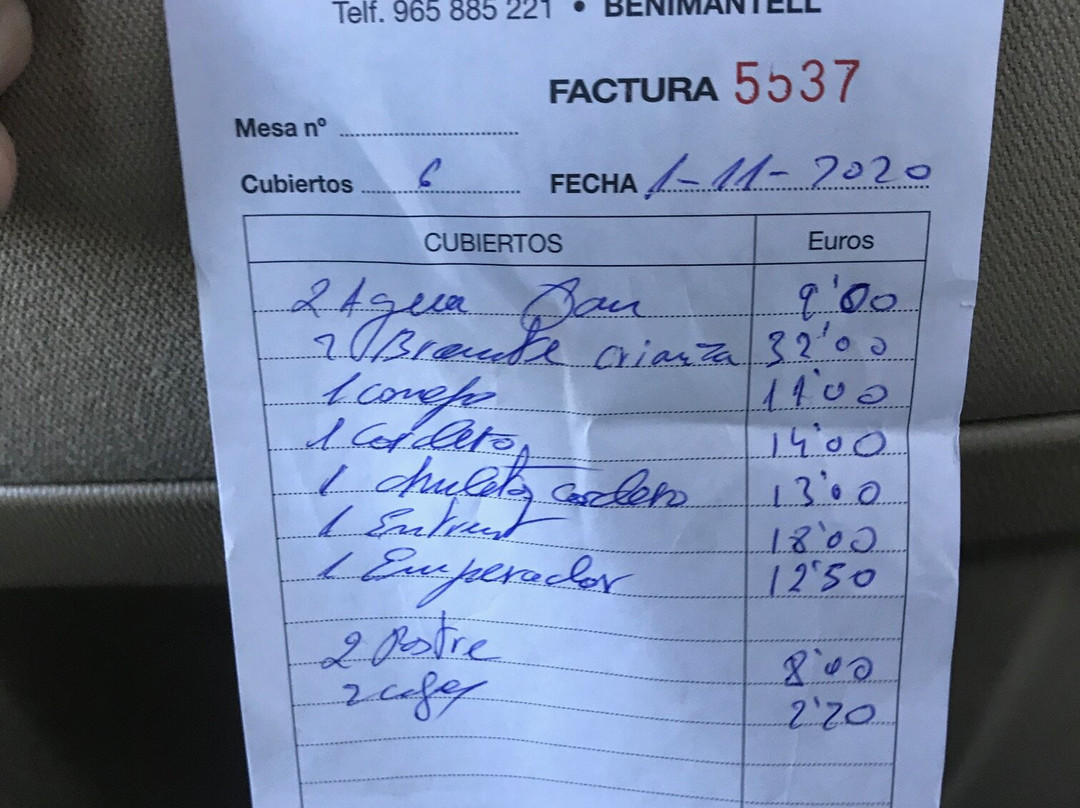 Telf. 965 885 221 • BENIMANTELL
FACTURA 5537
Mesa nº
Cubiertos 6 FECHA 1-11-2020
CUBIERTOS Euros
2 Agua Pan 9'00
2 Bramite crianza 32'00
1 conejo 11'00
1 Cordero 14'00
1 chuleta cordero 13'00
1 Entrecot 18'00
1 Emperador 12'50
2 Postre 8'00
2 cafes 2'20